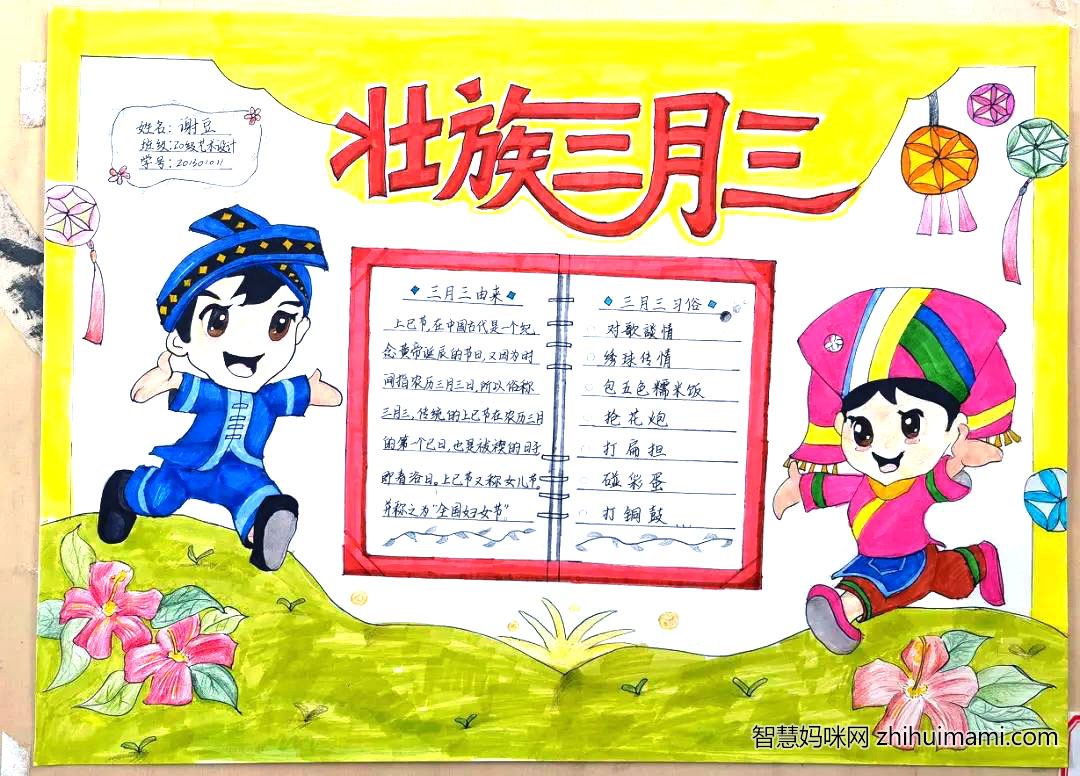 壮族三月三
姓名：谢豆
班级：20级艺术设计
学号：201301011
三月三由来
上巳节，在中国古代是一个纪
念黄帝诞辰的节日，又因为时
间指农历三月三日，所以俗称
三月三，传统的上巳节在农历三月
的第一个巳日，也是祓禊的日子
即春浴日。上巳节又称女儿节
并称之为“全国妇女节”
三月三习俗
对歌談情
绣球传情
包五色糯米饭
抢花炮
打扁担
碰彩蛋
打铜鼓...
智慧妈咪网 zhihuimami.com